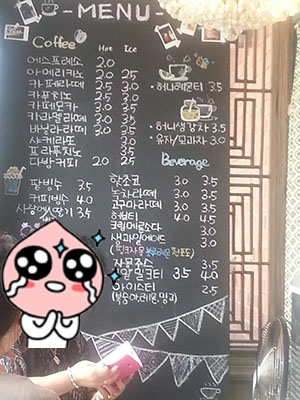 MENU
Coffee Hot Ice
에스프레소 2.0
아메리카노 2.0 2.5
카페라떼 2.5 3.0
카푸치노 2.5 3.0
카페모카 3.0 3.5
카라멜라떼 3.0 3.5
바닐라라떼 3.0 3.5
샤케라또 3.5
프라푸치노 3.5
다방커피 2.0 2.5
팥빙수 3.5
커피빙수 4.0
3.5
·허니레몬티 3.5
·허니생강차 3.5
·유자/모과차 3.0
Beverage
핫초코 3.0 3.5
녹차라떼 3.0 3.5
고구마라떼 3.0 3.5
허브티 4.0 4.5
크림메르소다 3.0
생과일에이드 3.0
자몽쥬스 3.5
밀크티 3.5 4.0
아이스티 2.5